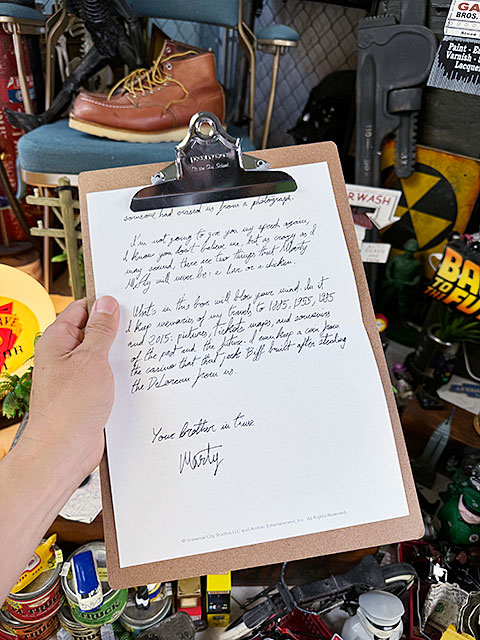 GA
BROS.
Paint - Ex
Varnish - En
Lacque
ERWASH
BACK
TO THE FU
someone had erased us from a photograph.
I'm not going to give you my speech again,
I know you don't believe me, but as crazy as I
may sound, there are two things that Marty
McFly will never be: a liar or a chicken.
What's in this box will blow your mind. In it
I keep memories of my travels to 1885, 1955, 1985
and 2015: pictures, tickets, maps, and souvenirs
of the past and the future. I even keep a coin from
the casino that that jerk Biff built after stealing
the DeLorean from us.
Your brother in time
Marty
© Universal City Studios LLC and Amblin Entertainment, Inc. All Rights Reserved.